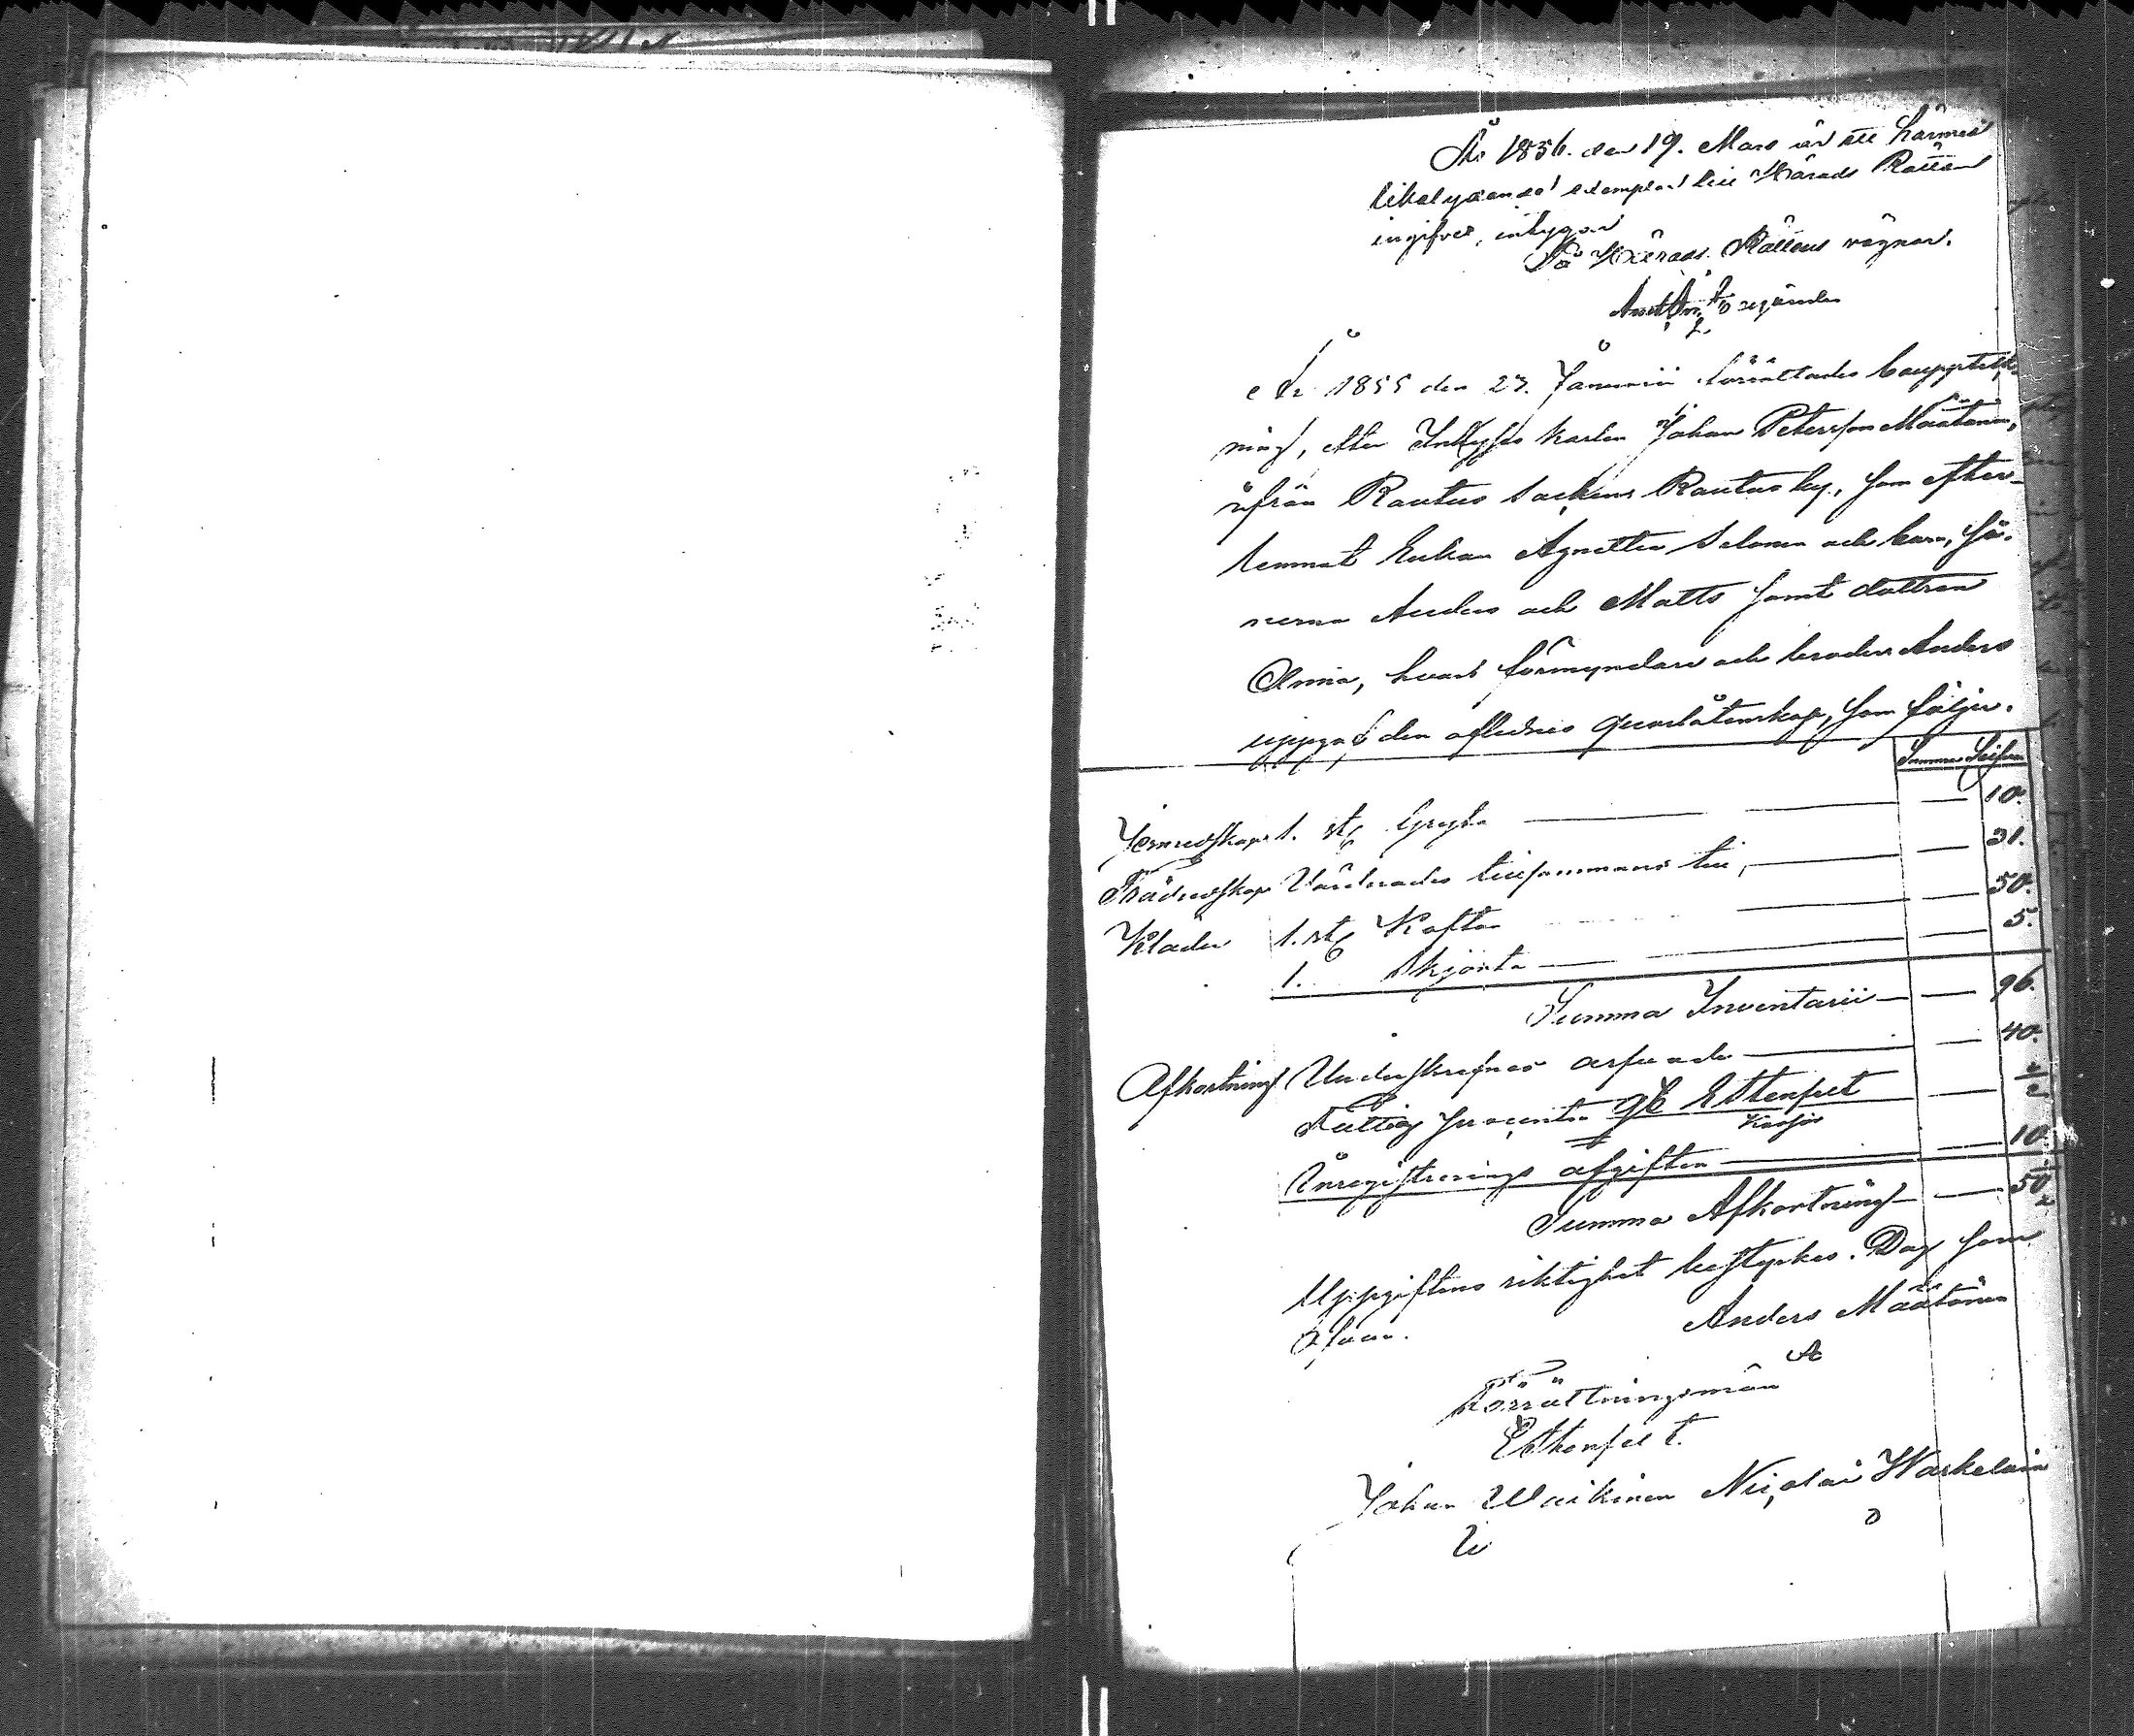 År 1856. den 19. Mars är ett härmed
likalydande exemplar till Härads Rätten
ingifvet, intygar
På Härads Rättens vägnar.
År 1855 den 23. Januarii förrättades bouppteck-
ning, efter Inhyses karlen Johan Petersson Määtänen,
ifrån Rautus Sockens Rautus by, som efter-
lemnat Enkan Agnetta Selonen och barn, Sö-
nerna Anders och Matts samt dottren
Anna, hvars förmyndare och broder Anders
uppgaf den aflednes qvarlåtenskap, som följer.
Summa Silfver
Jernredskap 1. st. Gryta — 10.
Trädredskap Värderades tillsammans till, — 31.
Kläder 1. st. Kaftan — 50.
1. Skjorta — 5.
Summa Inventarii — 96.
Afkortning Underskrefnes arfvode — 40.
Fattig procenten qvitt Ehrenfelt
Inregistrerings afgiften — 10.
Summa Afkortning — 50 1/2
Uppgiftens riktighet bestyrkes. Dag som
ofvan. Anders Määtänen
Förrättningsmän
Johan Waikinen Nicolai Warkelain